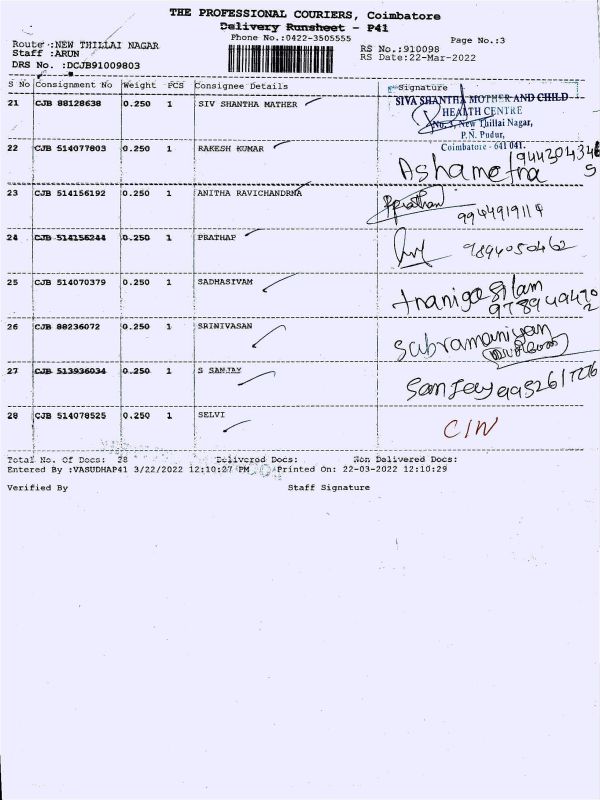 THE PROFESSIONAL COURIERS, Coimbatore
Delivery Runsheet - P41
Phone No.:0422-3505555
Page No.:3
Route :NEW THILLAI NAGAR
RS No.:910098
Staff :ARUN
RS Date:22-Mar-2022
DRS No. :DCJB91009803
S No Consignment No Weight PCS Consignee Details Signature
SIVA SHANTHA MOTHER AND CHILD
21 CJB 88128638 0.250 1 SIV SHANTHA MATHER
HEALTH CENTRE
No. 3, New Thillai Nagar,
P.N. Pudur,
Coimbatore - 641 041.
22 CJB 514077803 0.250 1 RAKESH KUMAR
23 CJB 514156192 0.250 1 ANITHA RAVICHANDRNA
9944919119
24 CJB 514156244 0.250 1 PRATHAP
9894050462
25 CJB 514070379 0.250 1 SADHASIVAM
26 CJB 88236072 0.250 1 SRINIVASAN
Subramaniyan
27 CJB 513936034 0.250 1 S SANJAY
Sanjeey
28 CJB 514078525 0.250 1 SELVI
C/N
Total No. Of Docs: 28 Delivered Docs: Non Delivered Docs:
Entered By :VASUDHAP41 3/22/2022 12:10:27 PM Printed On: 22-03-2022 12:10:29
Verified By Staff Signature